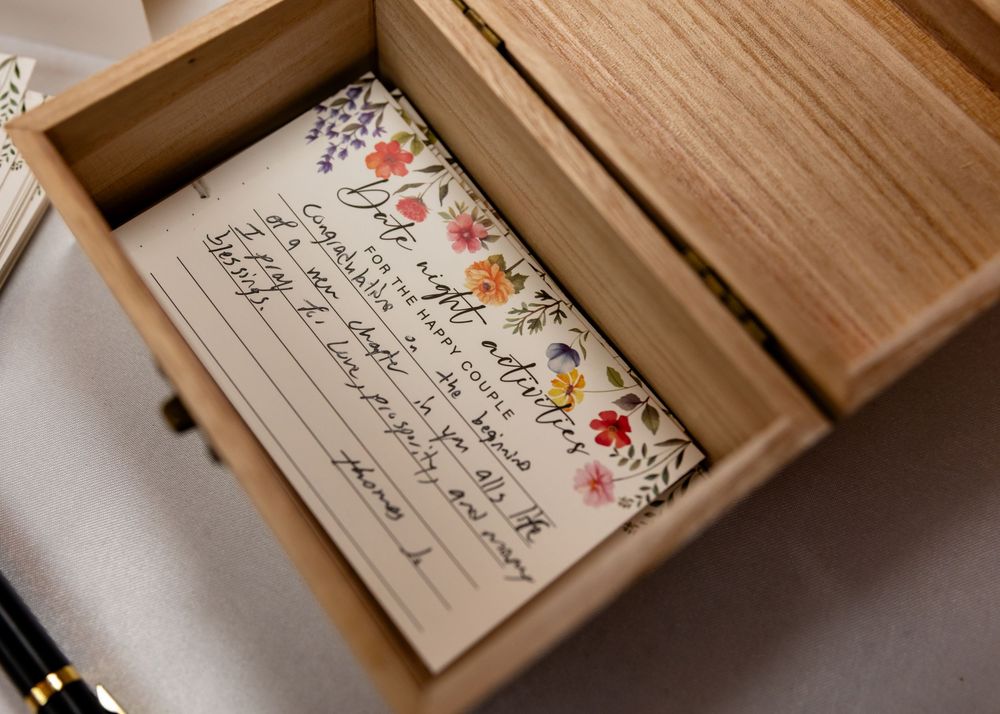 Date night activities
FOR THE HAPPY COUPLE
Congradulations on the beginning
of a new chapter in you alls life
I pray for Love, prosperity, and many
blessings.
thomas